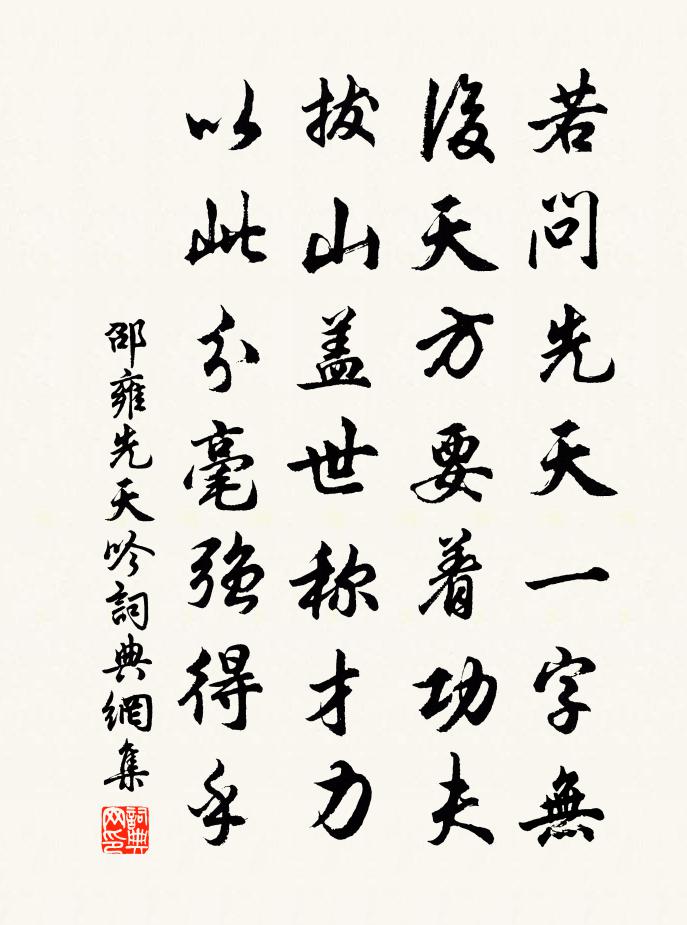 若問先天一字無
後天方要着功夫
拔山蓋世称才力
以此分毫強得乎
邵雍先天吟詞典網集
詞典网印